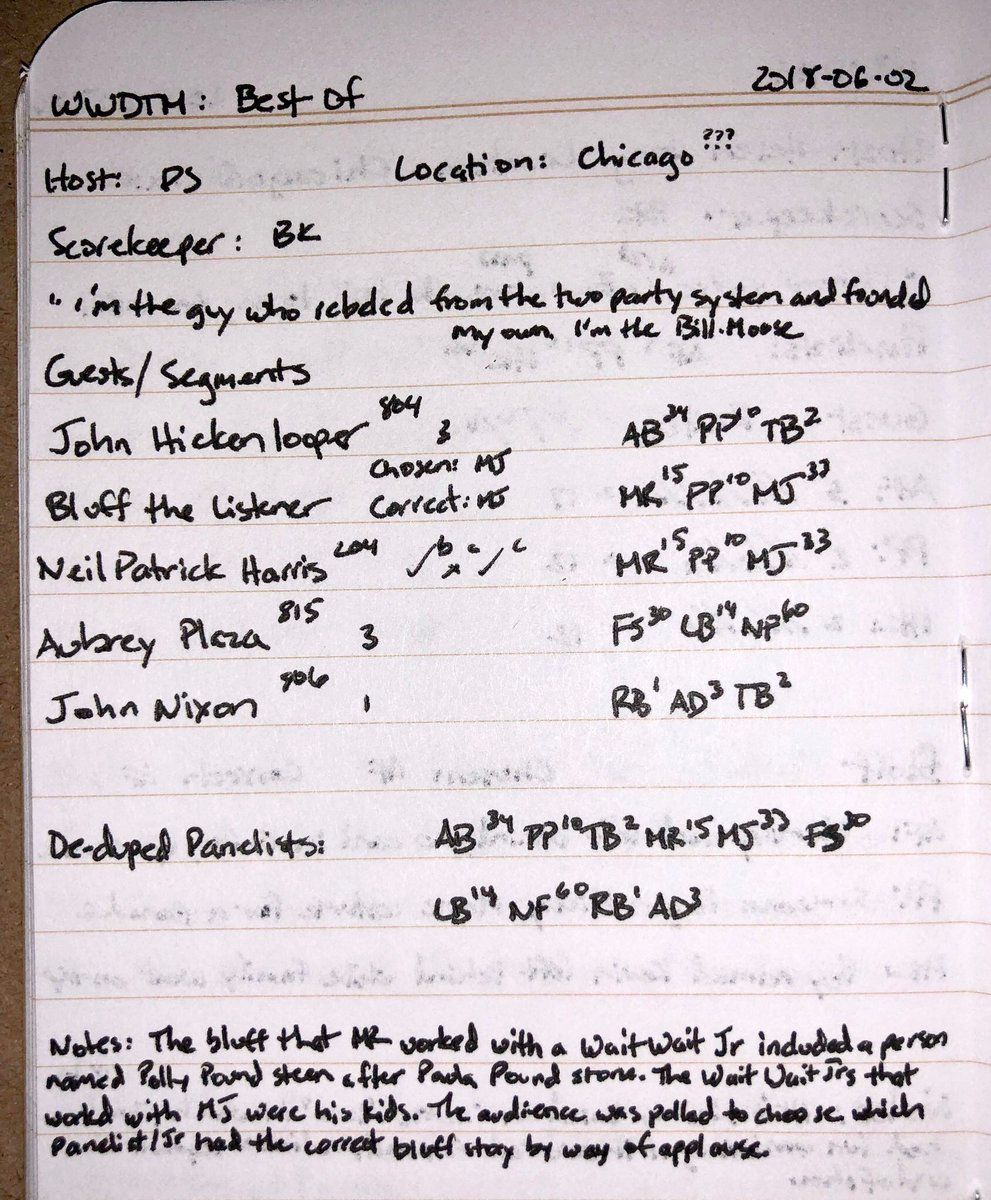 WWDTM: Best Of 2018-06-02
Host: PS Location: Chicago ???
Scorekeeper: BK
"I'm the guy who rebeled from the two party system and founded
my own, I'm the Bill-Moose
Guests/Segments
John Hickenlooper 804 3 AB34 PP10 TB2
Chosen: MJ
Bluff the Listener Correct: MJ MR15 PP10 MJ33
Neil Patrick Harris 204 ✓ b x c ✓ c MR15 PP10 MJ33
Aubrey Plaza 815 3 FS30 LB14 NF60
John Nixon 806 1 RB1 AD3 TB2
De-duped Panelists: AB34 PP10 TB2 MR15 MJ33 FS30
LB14 NF60 RB1 AD3
Notes: The bluff that MR worked with a Wait Wait Jr included a person
named Polly Pound steen after Paula Pound stone. The Wait Wait Jrs that
worked with MJ were his kids. The audience was polled to choose which
Panelist/Jr had the correct bluff story by way of applause.